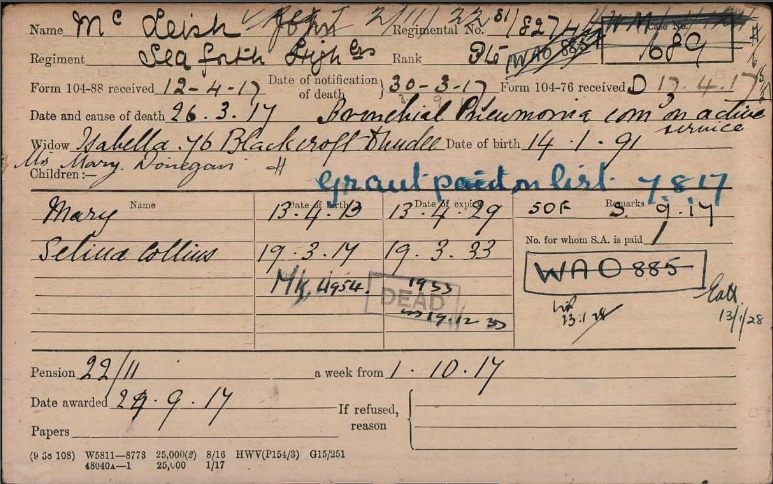 Name Mc Leish John 2/11/22 Regimental No. S/18274 Case No.
Regiment Seaforth High'rs Rank Pte WAO 885 689
Form 104-88 received 12-4-17 Date of notification of death } 30-3-17 Form 104-76 received D 17.4.17
Date and cause of death 26.3.17 Bronchial Pneumonia com'n on active service
Widow Isabella 76 Blackcroft Dundee Date of birth 14.1.91
Mrs Mary Donegan
Children:— Grant paid on list 7817
Name Date of birth Date of expiry Remarks
Mary 13.4.13 13.4.29 SOF S. 9.17
Selina Collins 19.3.17 19.3.33 No. for whom S.A. is paid 1
WAO 885
DEAD
13.1.28
13/1/28
Pension 22/11 a week from 1.10.17
Date awarded 29.9.17 If refused, reason {
Papers
(9 36 108) W5811—8773 25,000(2) 8/16 HWV(P154/3) G15/251
48040A—1 25,000 1/17